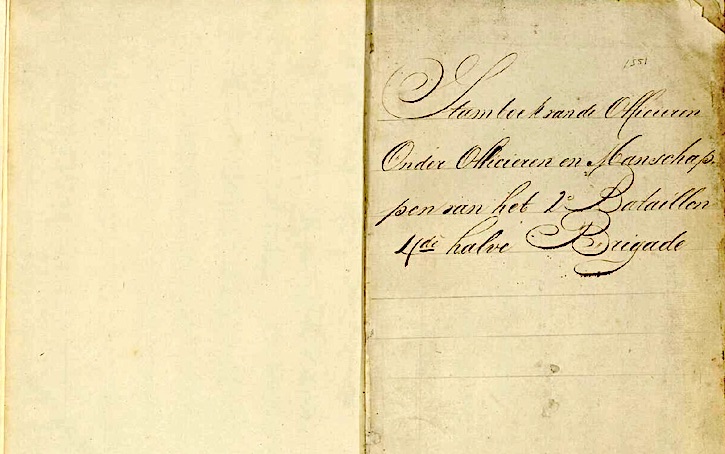 1551
Stamboek van de Officieren
Onder Officieren en Manschap-
pen van het 2e Bataillon
4de halve Brigade